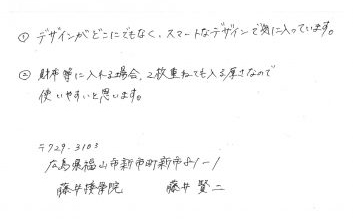 ① デザインがどこにでもなく、スマートなデザインで気に入っています。
② 財布等に入れる場合、2枚重ねても入る厚さなので
使いやすいと思います。
〒729-3103
広島県福山市新市町新市81-1
藤井接骨院　藤井 賢二